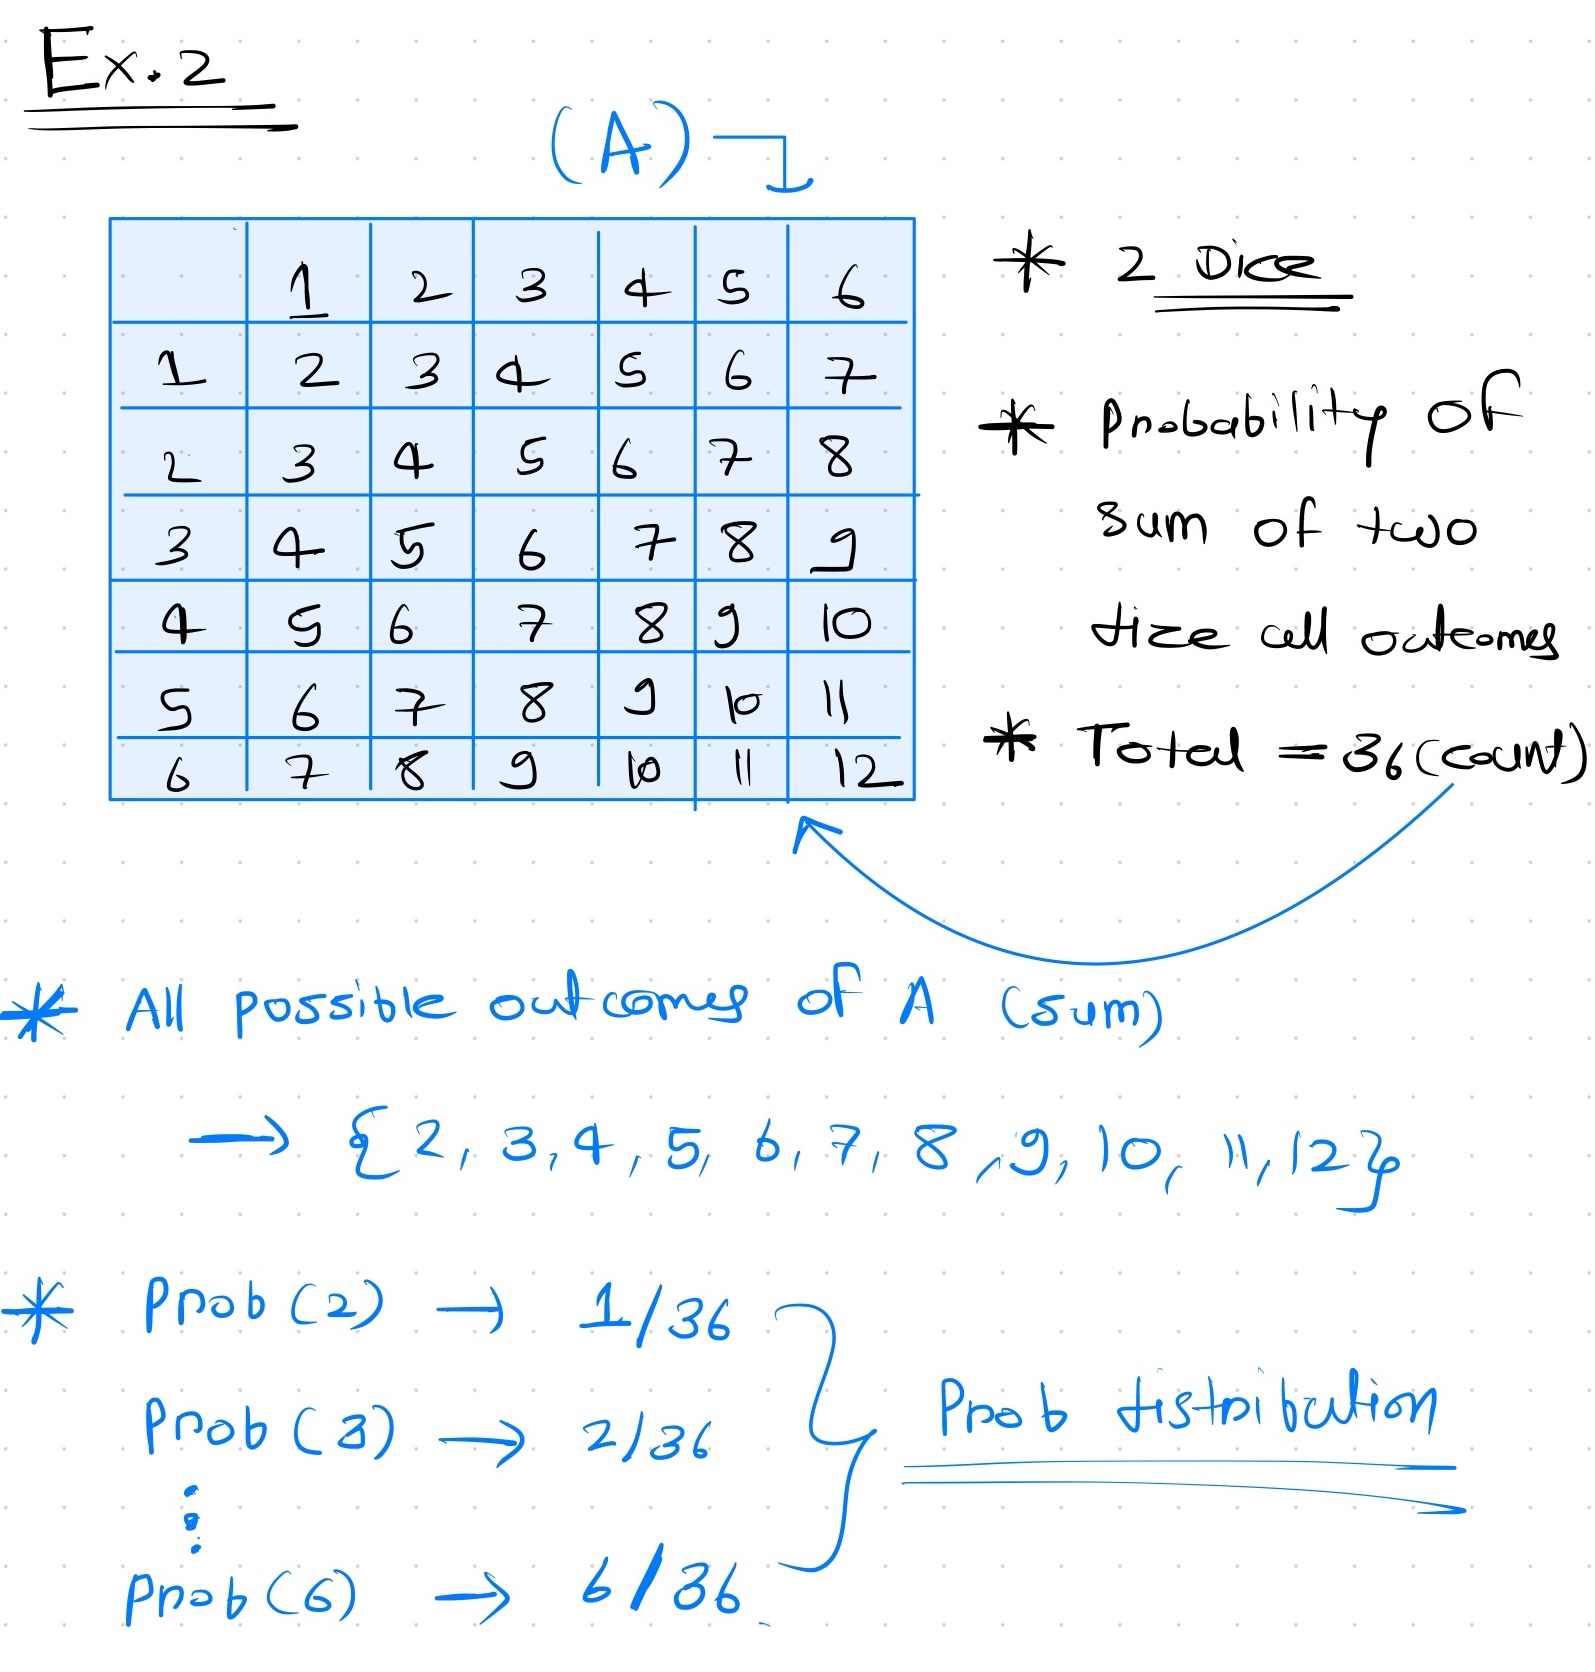 Ex. 2
(A)
1 2 3 4 5 6
1 2 3 4 5 6 7
2 3 4 5 6 7 8
3 4 5 6 7 8 9
4 5 6 7 8 9 10
5 6 7 8 9 10 11
6 7 8 9 10 11 12
* 2 Dice
* Probability of
sum of two
dize all outcomes
* Total = 36 (count)
* All possible outcomes of A (sum)
→ {2, 3, 4, 5, 6, 7, 8, 9, 10, 11, 12}
* Prob (2) → 1/36
Prob (3) → 2/36
⋮
Prob (6) → 6/36
Prob distribution